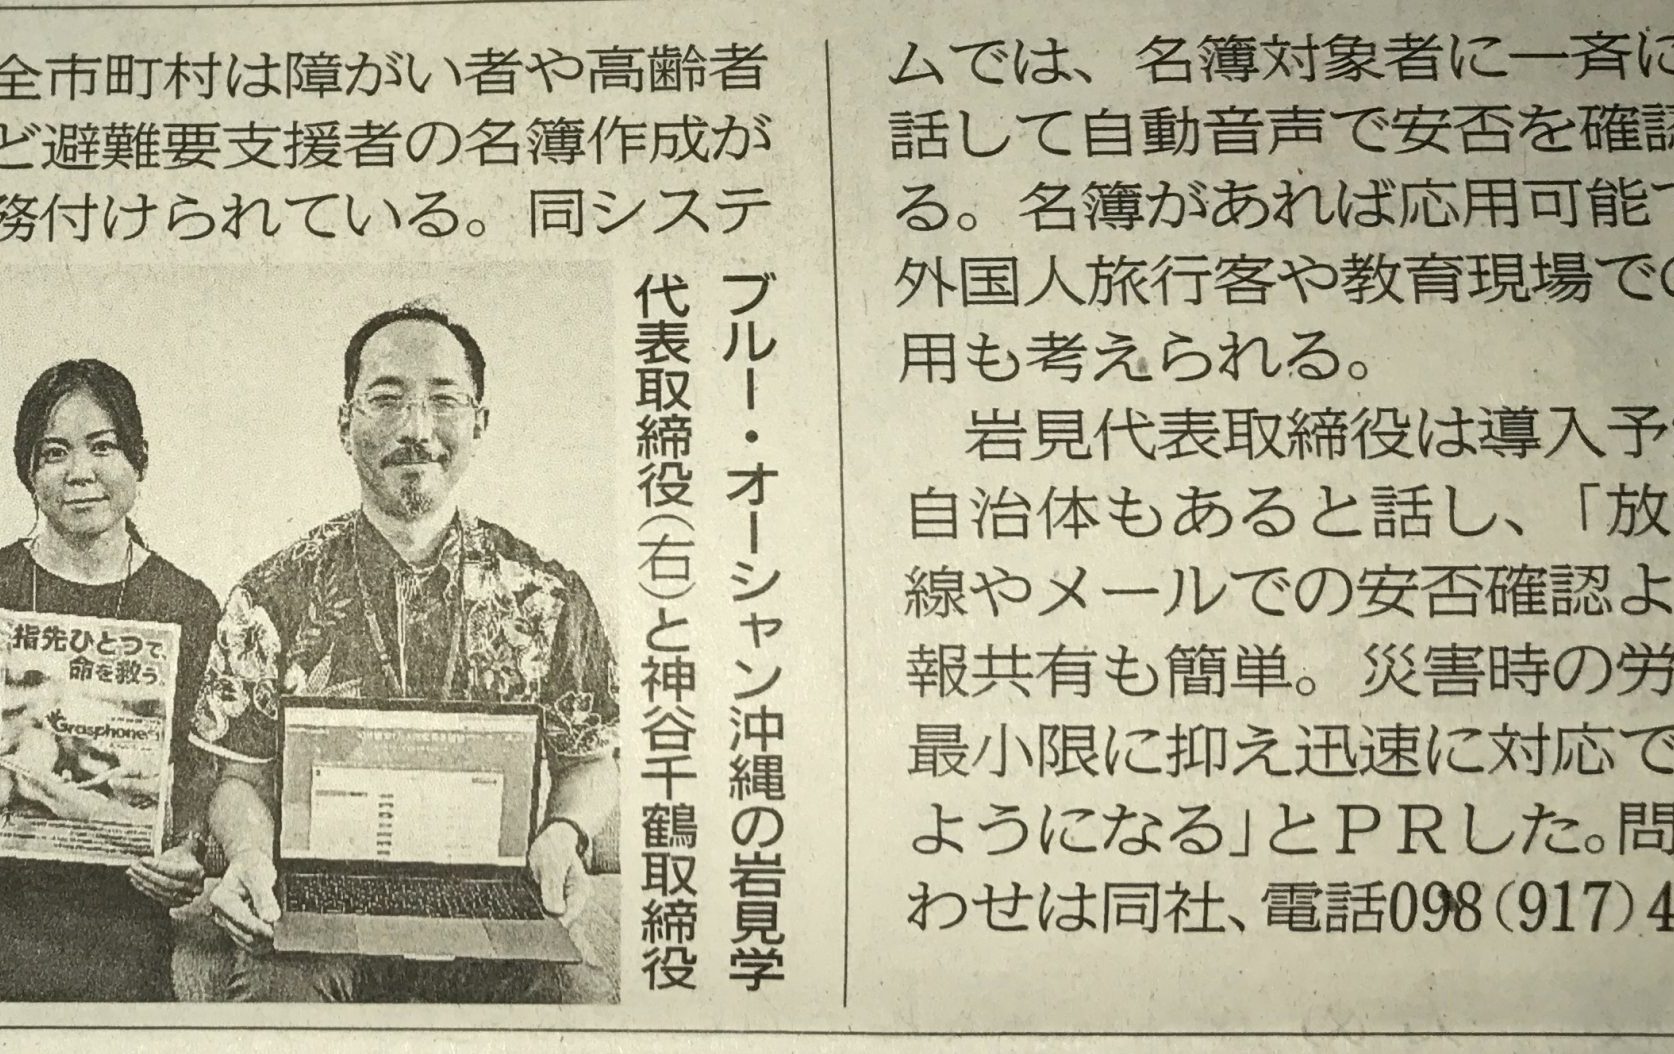 全市町村は障がい者や高齢者
ど避難要支援者の名簿作成が
務付けられている。同システ
ブルー・オーシャン沖縄の岩見学
代表取締役(右)と神谷千鶴取締役
指先ひとつで、
命を救う。
Grasphone
ムでは、名簿対象者に一斉に
話して自動音声で安否を確認
る。名簿があれば応用可能で
外国人旅行客や教育現場での
用も考えられる。
岩見代表取締役は導入予
自治体もあると話し、「放
線やメールでの安否確認よ
報共有も簡単。災害時の労
最小限に抑え迅速に対応で
ようになる」とPRした。問
わせは同社、電話098(917)4